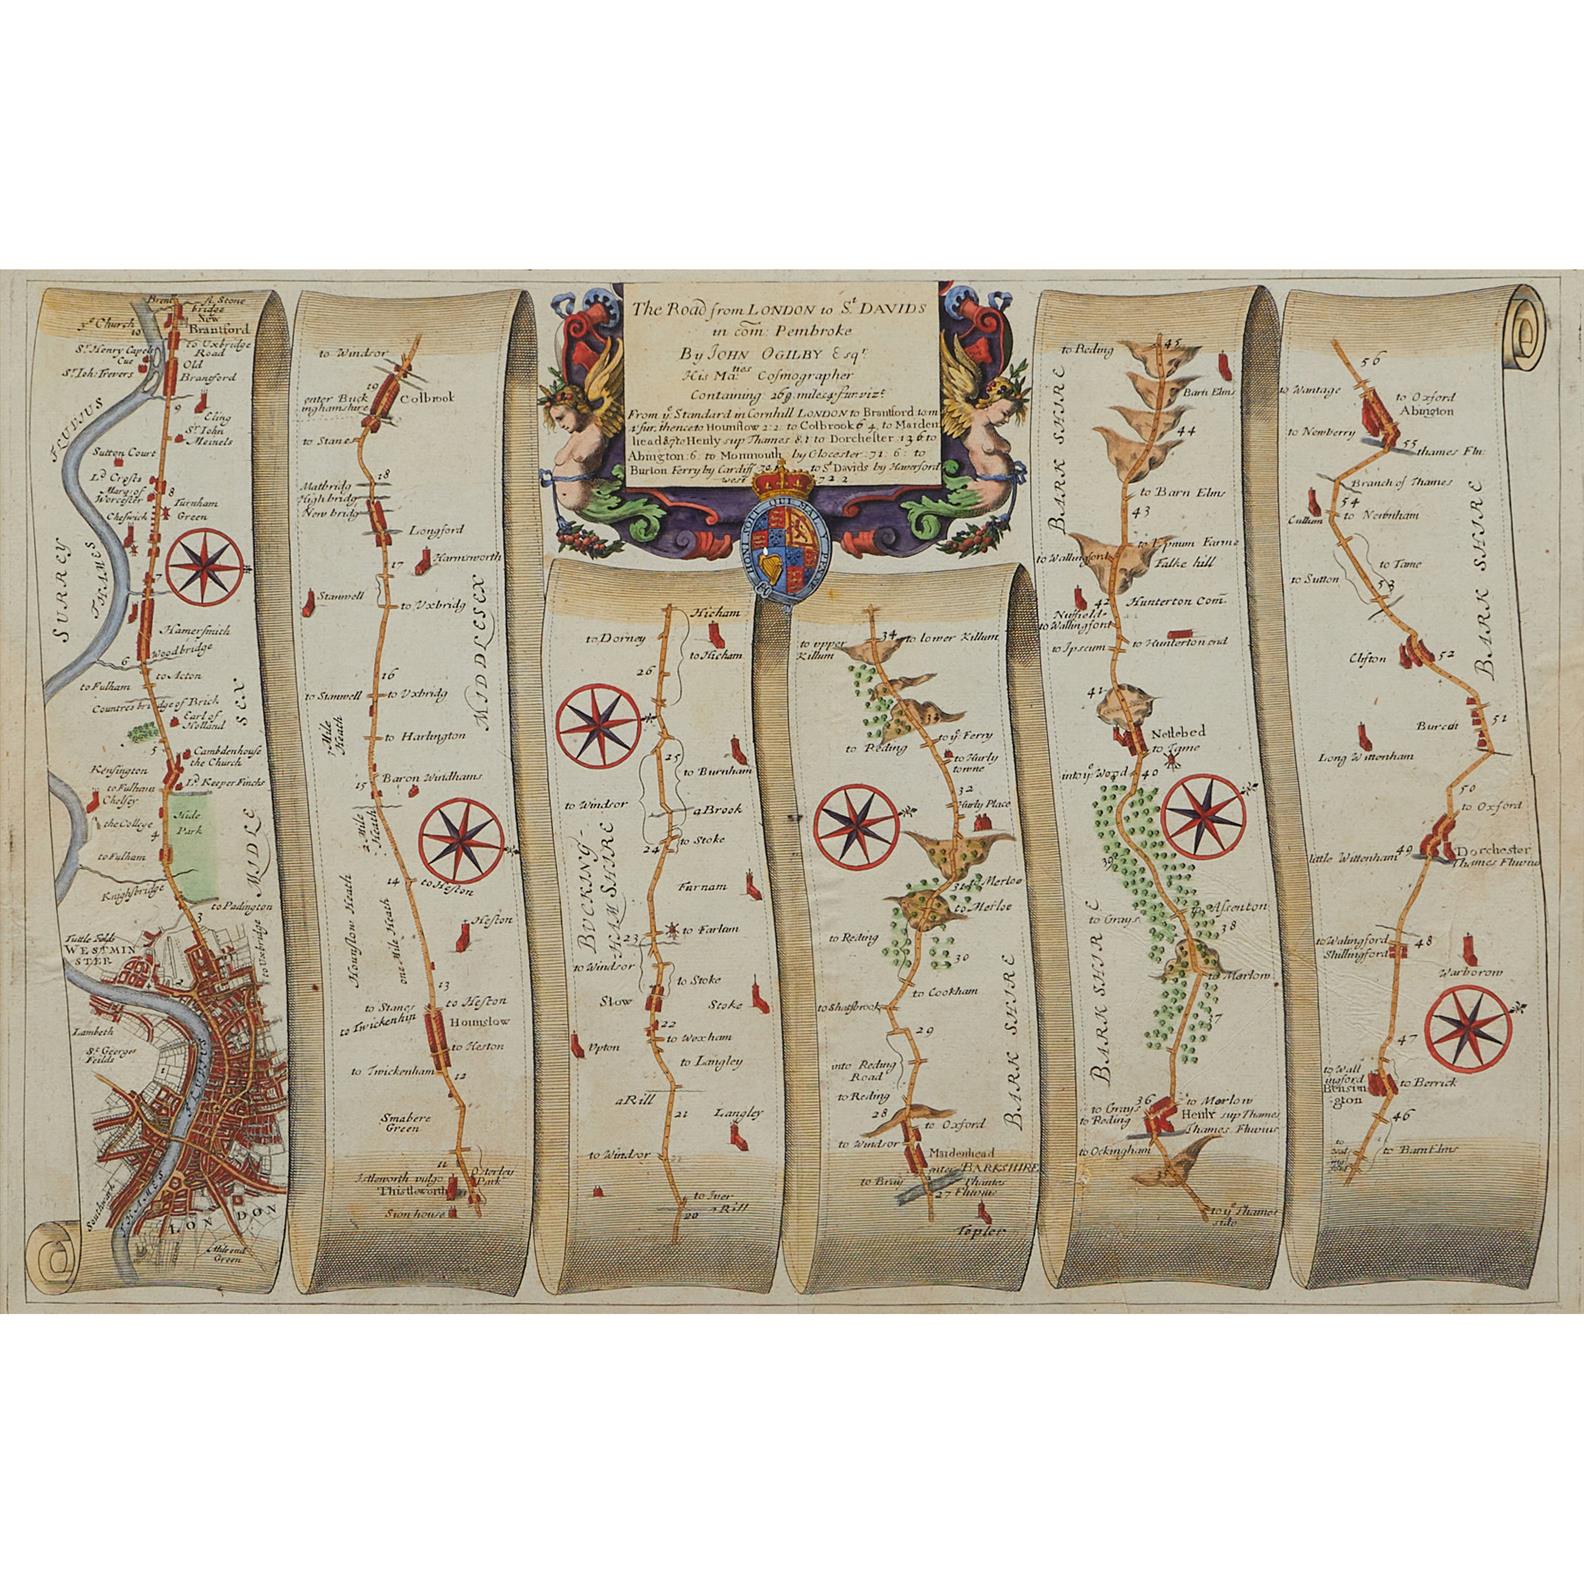 The Road from LONDON to St DAVIDS
in com: Pembroke
By JOHN OGILBY Esqr.
His Maties Cosmographer
Containing 269 miles 4 fur. vizt
From ye Standard in Cornhill LONDON to Brantford 10 m
2 fur, thence to Hounslow 2:2: to Colbrook 6 4, to Maiden
head & to Henly sup Thames 8 1 to Dorchester 13 6 to
Abington: 6: to Monmouth by Glocester 71: 6: to
Burton Ferry by Cardiff to St Davids by Haverford
west 72 2
HONI SOIT QUI MAL Y PENSE
Brent
A Stone
bridge
New
Brantford
ye Church
10
to Uxbridge
Road
Old
Branford
Sr Henry Capell
Cue
Sr Ioh: Trevers
9
Eling
Sr Iohn
Meinels
FLUDIUS
Sutton Court
Ld Crofts
Mary of
Worcester
8
Turnham
Green
Cheswick
SURREY
THAMES
7
Hamersmith
Woodbridge
6
to Acton
to Fulham
Countres bridge of Brick
Earl of
Holland
5
Cambdenhouse
the Church
Kensington
to Fulham
Chelsey
Ld Keeper Finchs
the College
4
Hide
Park
to Fulham
Knightsbridge
to Padington
3
MIDLE SEX
to Uxbridge
Tuttle Fields
WESTMIN
STER
2
Lambeth
St Georges
Feilds
1
FLUVIUS
Southwark
THAMES
LONDON
Mile end
Green
to Windsor
19
enter Buck
inghamshire
Colbrook
to Stanes
18
Matbridg
High bridg
New bridg
Longford
17
Harmsworth
Stanwell
to Uxbridg
MIDDLESEX
16
to Stanwell
to Uxbridg
Mile
Heath
to Harlington
15
Baron Windhams
2 Mile
Heath
14
to Heston
Hounslow Heath
one Mile Heath
Heston
13
to Stanes
to Heston
to Twickenhm
Hounslow
to Heston
to Twickenham
12
Smabere
Green
11
Istleworth vulgo
Thistleworth
Osterley
Park
Sion house
Hicham
to Dorney
to Hicham
26
25
to Burnham
to Windsor
a Brook
24
to Stoke
BUCKING-
HAM SHIRE
Farnam
23
to Farlam
to Windsor
to Stoke
Slow
Stoke
22
to Wexham
Upton
to Langley
a Rill
21
Langley
to Windsor
to Iver
a Rill
20
to upper
Killum
34
to lower Killum
to Reding
to ye Ferry
to Hurly
towne
32
Hurly Place
31
to Merloe
to Merloe
to Reding
30
to Cookham
to Shatsbrook
29
BARK SHIRE
into Reding
Road
to Reding
28
to Oxford
to Windsor
Maidenhead
enter BARKSHIRE
to Bray
Thames
27
Fluvius
Topler
45
to Reding
Barn Elms
BARK SHIRE
44
to Barn Elms
43
to Wallingford
to Ipsum Farme
Falke hill
42
Hunterton Com
Nuffield
to Wallingford
to Ipscum
to Hunterton end
41
Nettlebed
to Tame
into ye Wood
40
39
to Grays
Assenton
38
BARK SHIRE
to Marlow
37
36
to Grays
to Reding
to Marlow
Henly sup Thames
Thames Fluvius
to Ockingham
35
to ye Thames
side
56
to Wantage
to Oxford
Abington
to Newberry
55
thames Flu:
Branch of Thames
54
Cullum
to Newnham
to Tame
to Sutton
53
BARK SHIRE
Clifton
52
Burcot
51
Long Wittenham
50
to Oxford
49
Dorchester
Thames Fluvius
little Wittenham
to Walingford
Shillingford
48
Warborow
47
to Wall
ingford
Bensin
gton
to Berrick
46
to Barn Elms